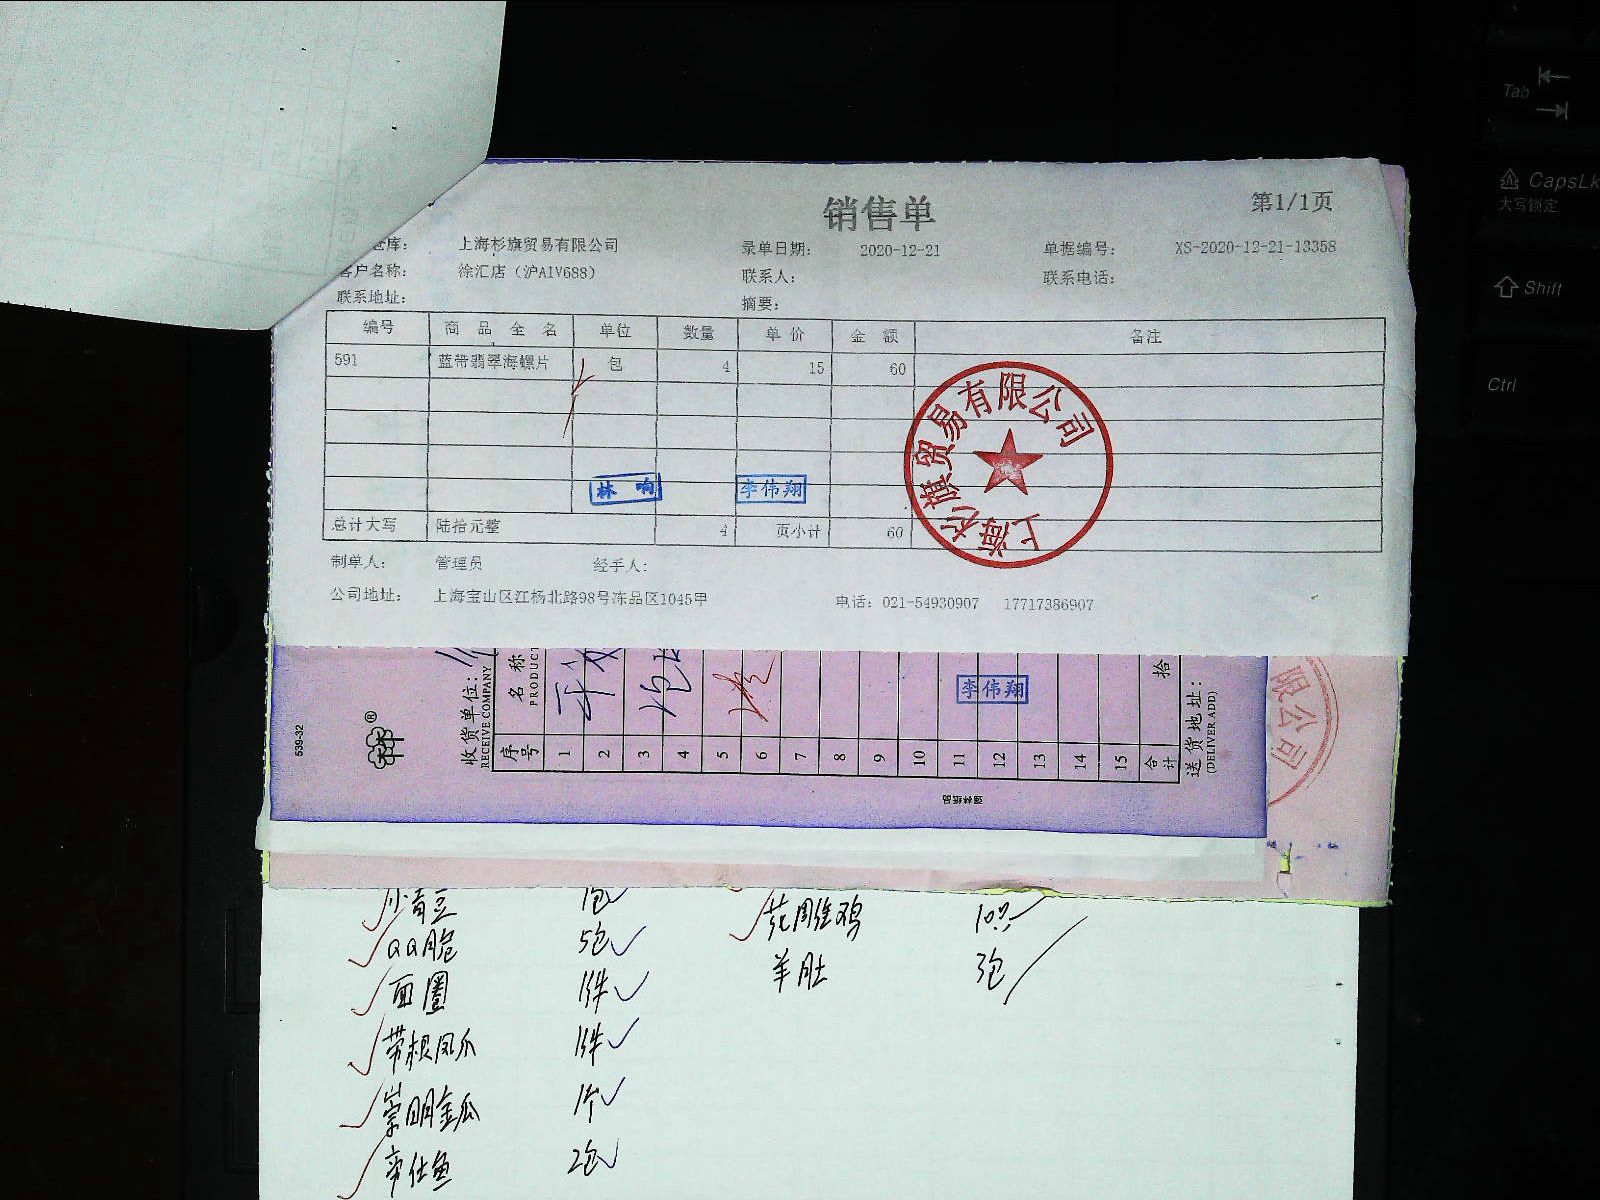 销售单
第1/1页
仓库： 上海杉旗贸易有限公司 录单日期： 2020-12-21 单据编号： XS-2020-12-21-13358
客户名称： 徐汇店（沪AIV688） 联系人： 联系电话：
联系地址： 摘要：
编号 商品全名 单位 数量 单价 金额 备注
591 蓝带翡翠海螺片 包 4 15 60
林响 李伟翔
上海杉旗贸易有限公司
总计大写 陆拾元整 4 页小计 60
制单人： 管理员 经手人：
公司地址： 上海宝山区江杨北路98号冻品区1045甲 电话：021-54930907 17717386907
539-32
收货单位：
RECEIVE COMPANY
序号 名称
PRODUCT
1
2
3
4
5
6
7
8
9
10
11
12
13
14
15
合计 拾
李伟翔
送货地址：
(DELIVER ADD)
限公司
小青豆 1包 花雕鸡
QQ脆 5包 羊肚 3包
面圈 1件
带根凤爪 1件
崇明金瓜 1个
2包
Tab
CapsLk
大写锁定
Shift
Ctrl